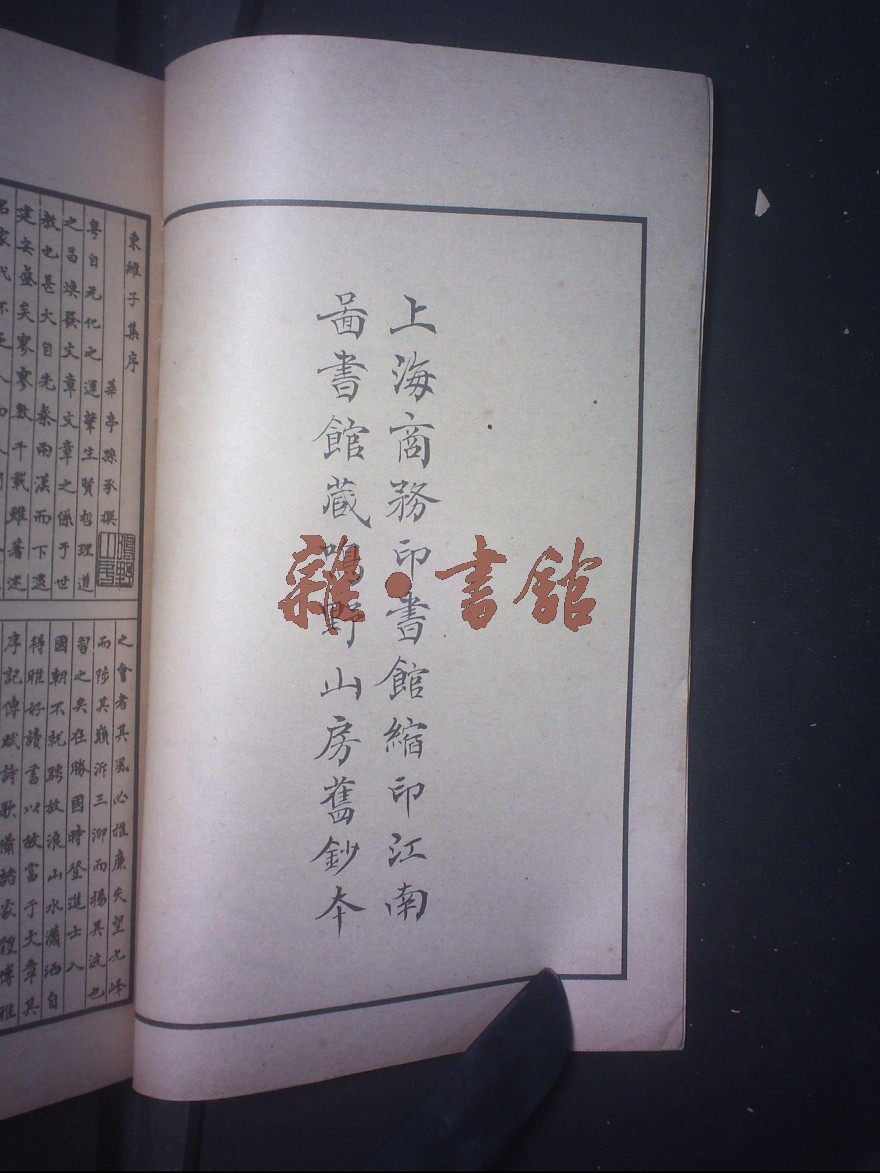 上海商務印書館縮印江南
啚書館藏鳴野山房舊鈔本
雜·書館
東維子集序
華亭孫承撰
鳴野山房
粤自元化之運肇生賢哲理道
之昌煥發文章文章之係于世
教也甚大自先秦兩漢而下逮
建安盛矣寥寥數千載雖著述
名家代不乏人
之會者其風心推廉夫望九峰
而陟其巔泝三泖而揚其波也
習之矣在勝國時登進士入
國朝不就聘放浪山水瀟洒自
得睢好讀書以故富于文章其
序記傳賦詩歌備諸家體博雅